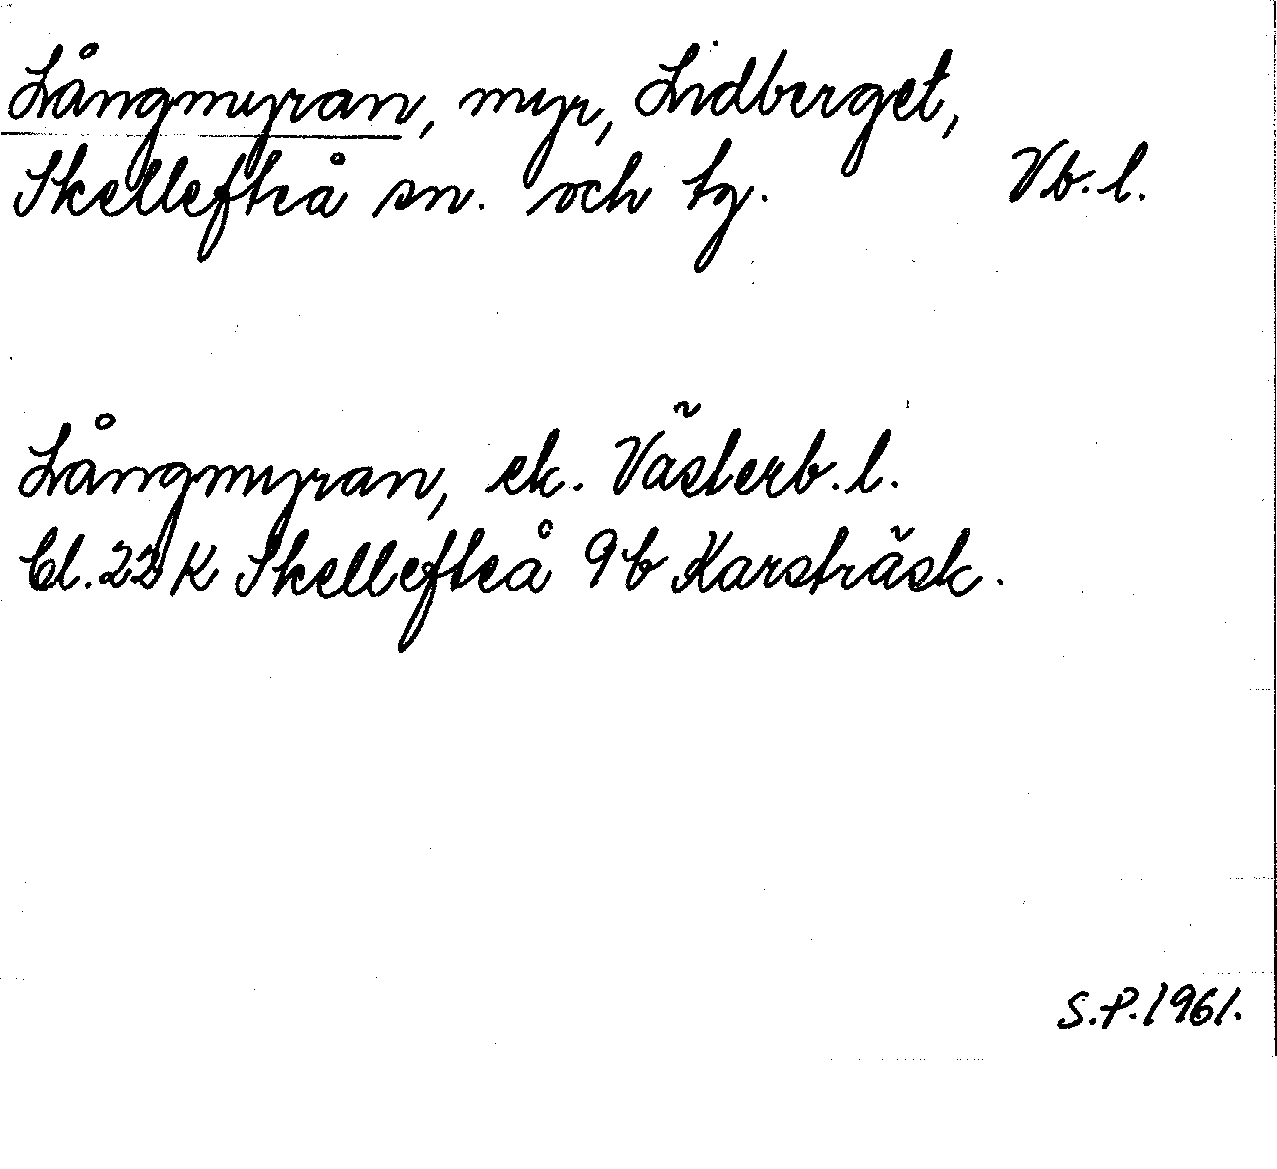 Långmyran, myr, Lidberget,
Skellefteå sn. och tg. Vb.l.
Långmyran, ek. Västerb.l.
Bl. 22 K Skellefteå 9b Karsträsk.
S.P. 1961.